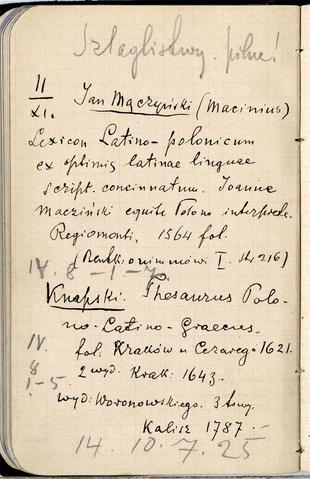 pilne!
II
XI.
Jan Mączyński (Macinius)
Lexicon Latino-polonicum
ex optimis latinae linguae
script. concinnatum. Joanne
Maczinski equite Polono interprete.
Regiomonti, 1564 fol.
I. str 216)
IV. 8 - 1 - 70
Knapski. Thesaurus Polo-
no-Latino-Graecus.
IV. fol. Kraków u Cezarego 1621.
8 2 wyd. Krak: 1643.
1-5
wyd: Woronowskiego. 3 tomy.
Kalisz 1787.-
14. 10. 7. 25